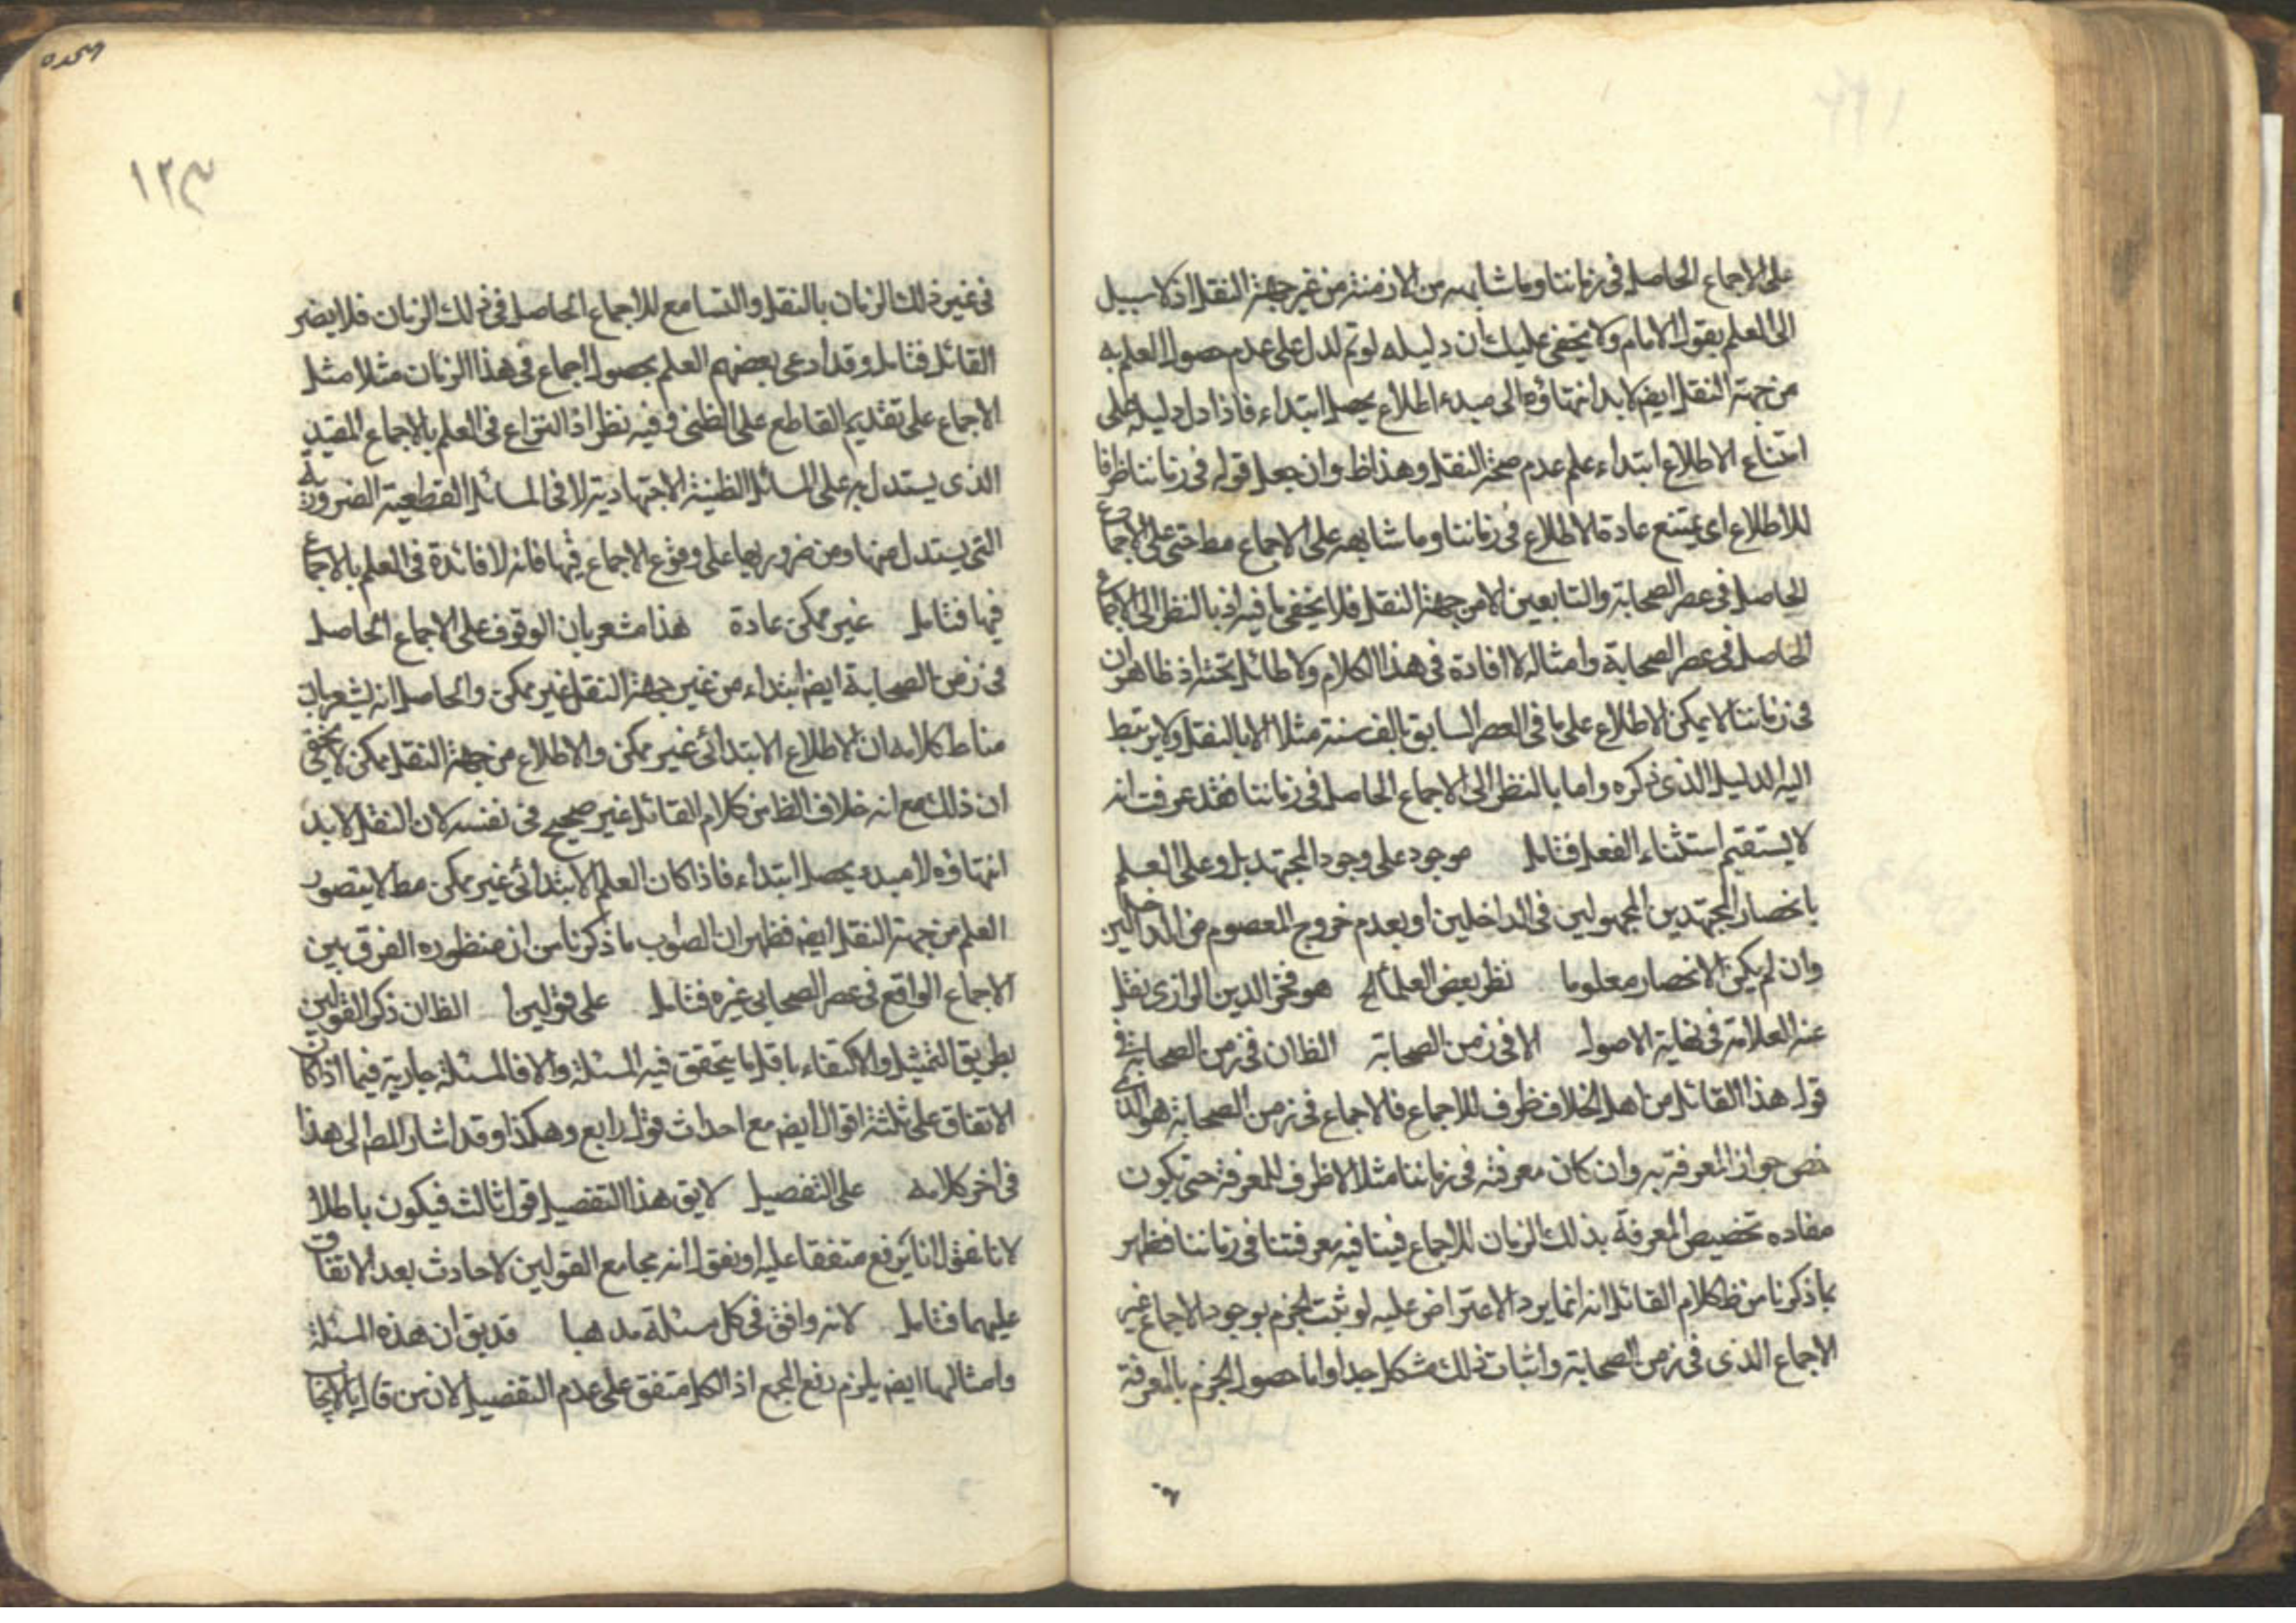 على الاجماع الحاصل فى زماننا وما شابهه من الازمنة من غير جهة النقل اذ لا سبيل
الى العلم بقول الامام ولا يخفى عليك ان دليله لو تم لدل على عدم حصول العلم به
من جهة النقل ايضه لا بد انتهاؤه الى مبدء اطلاع يحصل ابتداء فاذا دل دليله على
امتناع الاطلاع ابتداء علم عدم صحة النقل وهذا ظ وان جعل قوله فى زماننا ظرفا
للاطلاع اى يمتنع عادة الاطلاع فى زماننا وما شابهه على الاجماع مط حتى على الاجماع
الحاصل فى عصر الصحابة والتابعين الا من جهة النقل فلا يخفى ما فيه اذ بالنظر الى الاجماع
الحاصل فى عصر الصحابة وامثاله لا افادة فى هذا الكلام ولا طائل تحته اذ ظاهر ان
فى زماننا لا يمكن الاطلاع على ما فى العصر السابق بالف سنة مثلا الا بالنقل ولا يرتبط
اليه الدليل الذى ذكره واما بالنظر الى الاجماع الحاصل فى زماننا فقد عرفت انه
لا يستقيم استثناء الفعل فتامل موجود على وجود المجتهد بل وعلى العلم
بانحصار المجتهدين المجهولين فى الداخلين او بعدم خروج المعصوم من الداخلين
وان لم يكن الانحصار معلوما نظر بعض العلماء الخ هو فخر الدين الرازى نقل
عنه العلامة فى نهاية الاصول الا فى زمن الصحابة الظ ان فى زمن الصحابة فى
قول هذا القائل من اهل الخلاف ظرف للاجماع فالاجماع فى زمن الصحابة هو الذى
خص جواز المعرفة به وان كان معرفته فى زماننا مثلا لا ظرف للمعرفة حتى يكون
مفاده تخصيص المعرفة بذلك الزمان للاجماع فينافيه معرفتنا فى زماننا فظهر
بما ذكرنا من ظ كلام القائل انه انما يرد الاعتراض عليه لو ثبت الجزم بوجود الاجماع غير
الاجماع الذى فى زمن الصحابة واثبات ذلك مشكل جدا واما حصول الجزم بالمعرفة
١٢٣
فى غير ذلك الزمان بالنقل والتسامع للاجماع الحاصل فى ذلك الزمان فلا يضر
القائل فتامل وقد ادعى بعضهم العلم بحصول اجماع فى هذا الزمان مثلا مثل
الاجماع على تقديم القاطع على الظنى وفيه نظر اذ النزاع فى العلم بالاجماع المقيد
الذى يستدل به على المسائل الظنية الاجتهادية لا فى المسائل القطعية الضرورية
التى يستدل منها ومن ضروريها على وقوع الاجماع فيها فانه لا فائدة فى العلم بالاجماع
فيها فتامل غير ممكن عادة هذا مشعر بان الوقوف على الاجماع الحاصل
فى زمن الصحابة ايضه ابتداء من غير جهة النقل غير ممكن والحاصل انه يشعر بان
مناط كلامه ان الاطلاع الابتدائى غير ممكن والاطلاع من جهة النقل ممكن لا يخفى
ان ذلك مع انه خلاف الظ من كلام القائل غير صحيح فى نفسه لان النقل لا بد
انتهاؤه لا مبدء يحصل ابتداء فاذا كان العلم الابتدائى غير ممكن مط لا يتصور
العلم من جهة النقل ايضه فظهر ان الصواب ما ذكرنا من ان منظوره الفرق بين
الاجماع الواقع فى عصر الصحابى غيره فتامل على قولين الظ ان ذكر القولين
بطريق التمثيل والاكتفاء باقل ما يتحقق فيه المسئلة والا فالمسئلة جارية فيما اذا كان
الاتفاق على ثلثة اقوال ايضه مع احداث قول رابع وهكذا وقد اشار المص الى هذا
فى اخر كلامه على التفصيل لا يق هذا التفصيل قول ثالث فيكون باطلا
لانا نقول انا يرفع متفقا عليه او نقول انه مجامع القولين لا حادث بعد الاتفاق
عليهما فتامل لانه وافق فى كل مسئلة مذهبا قد يق ان هذه المسئلة
وامثالها ايضه يلزم رفع المجمع اذ الكل متفق على عدم التفصيل لان من قال بالايجاب